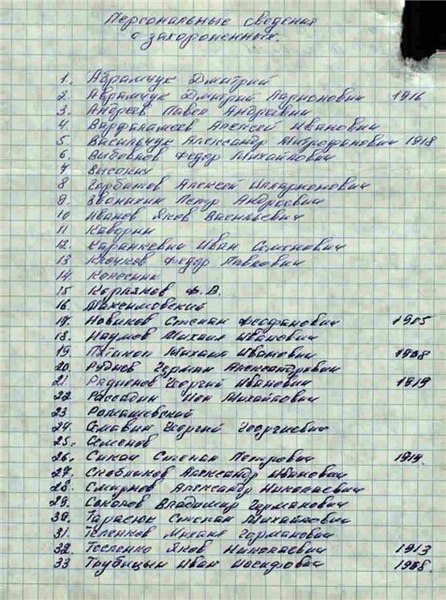 Персональные сведения
о захороненных.
1. Абрамчук Дмитрий
2. Абрамчук Дмитрий Ларионович 1916
3. Андреев Павел Андреевич
4. Варфоломеев Алексей Иванович
5 Васильчук Александр Митрофанович 1918
6. Выбовнов Федор Михайлович
7 Высоких
8 Горбатов Алексей Илларионович
9. Звонкин Петр Андреевич
10 Иванов Яков Васильевич
11 Каворин
12. Каранкевич Иван Семенович
13. Клочков Федор Павлович
14. Колосник
15 Корпяков Ф.Д.
16. Максимовский
17. Новиков Степан Феофанович 1905
18. Наумов Михаил Иванович
19. Михаил Иванович 1908
20. Руднев Герман Александрович
21. Радионов Георгий Иванович 1919
22 Рассадин Ион Михайлович
23 Ромашевский
24. Семавин Георгий Георгиевич
25. Семенов
26. Степан Петрович
27. Скобликов Александр Иванович
28. Смирнов Александр Николаевич
29. Соколов Владимир Германович
30. Тарасюк Степан Михайлович
31. Теленков Германович
32. Тесленко Яков Николаевич 1913
33 Трубицын Иван